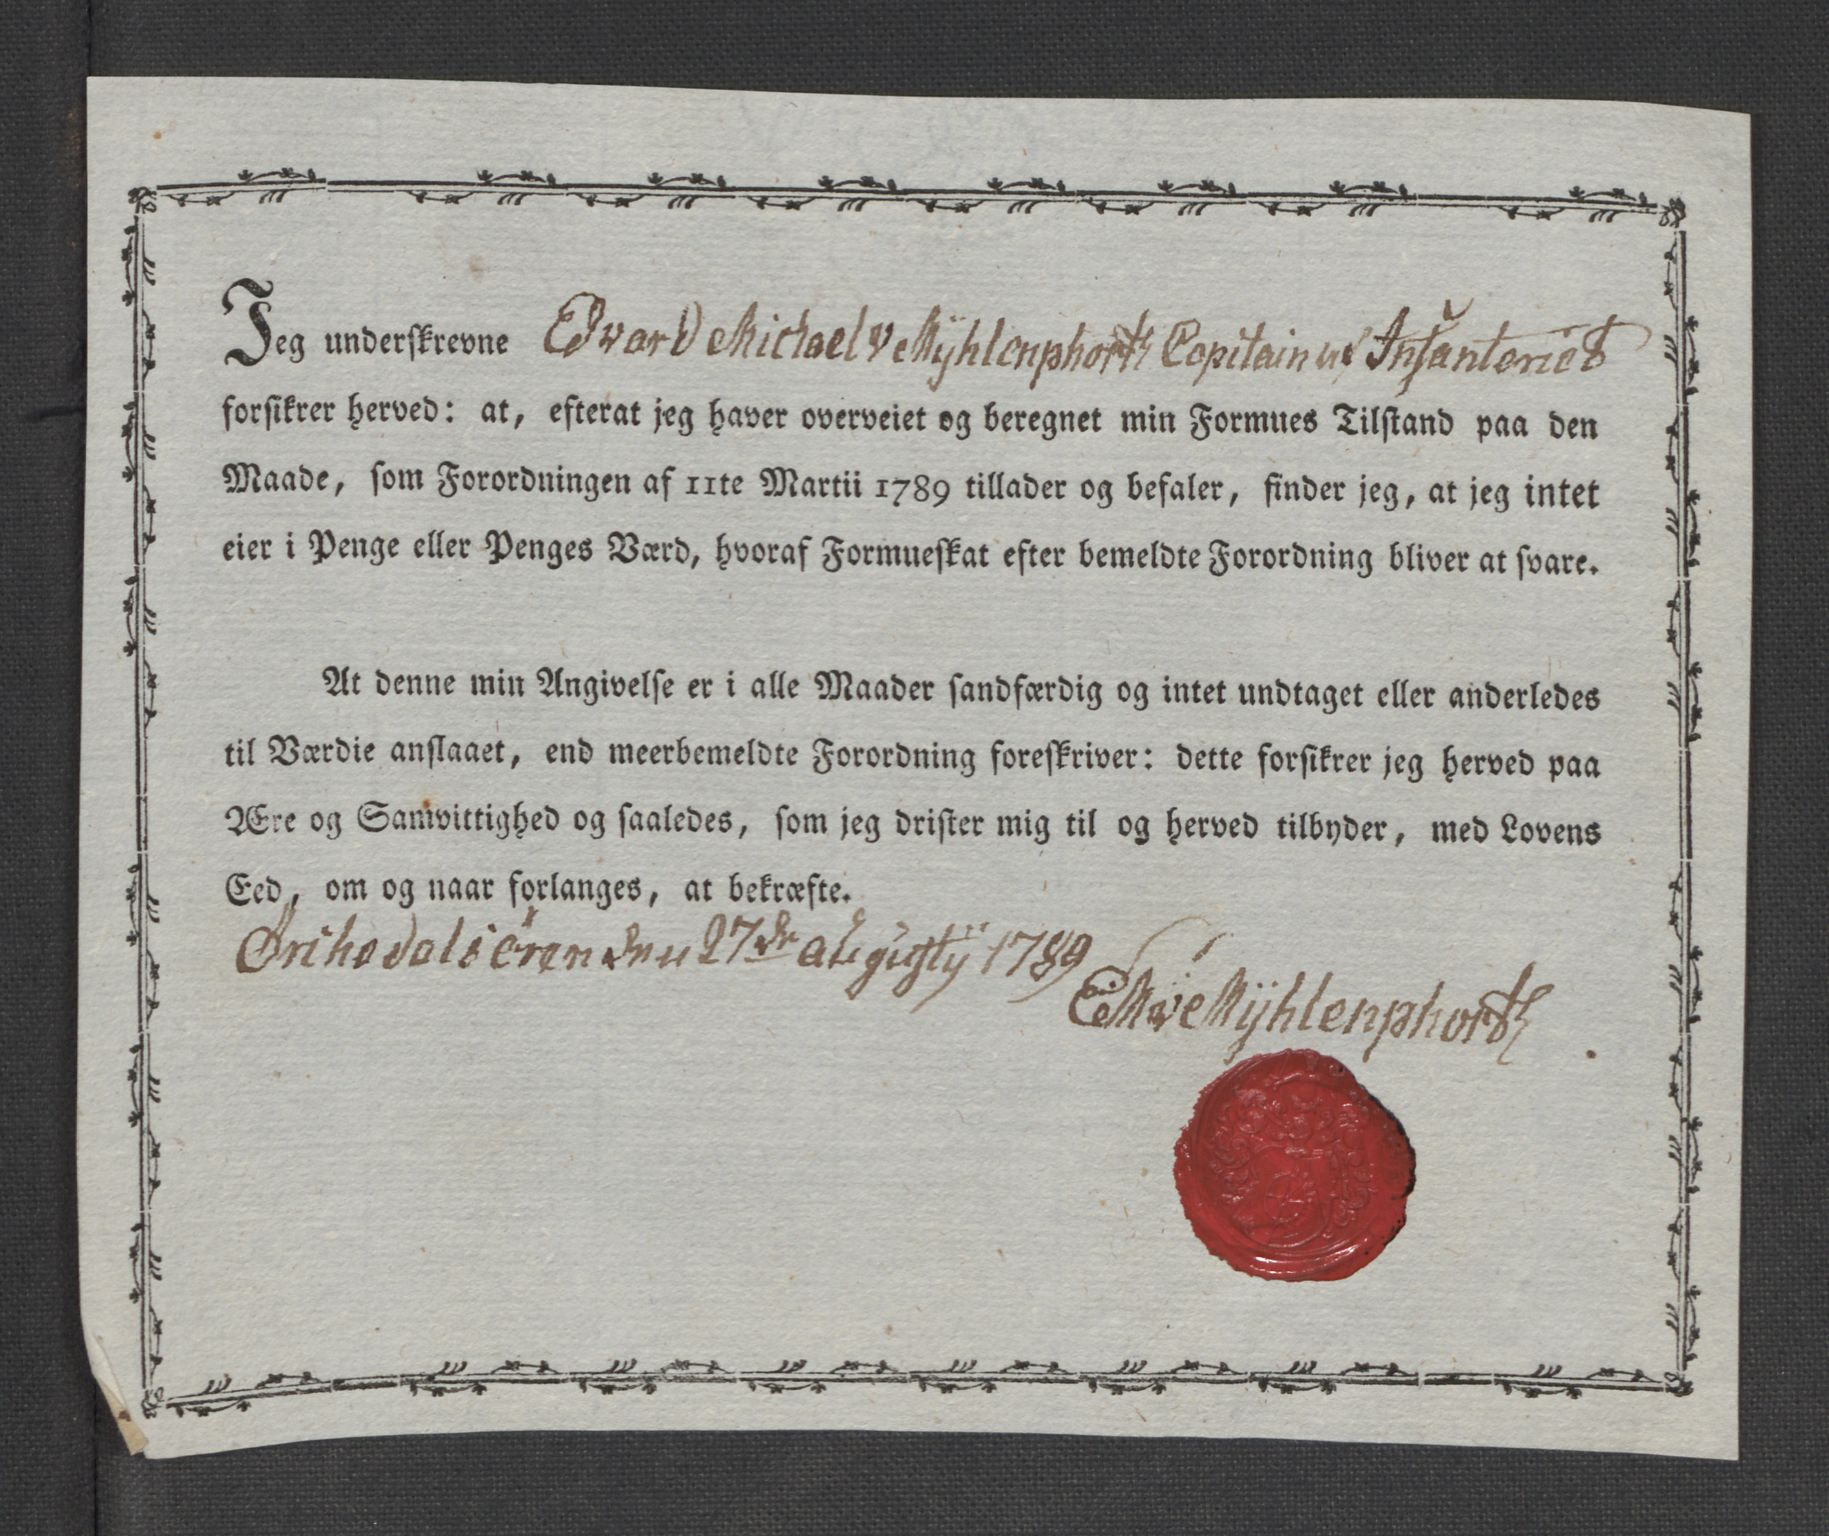 Jeg underskrevne Edvard Michael v Mÿhlenphorth Capitain ved Infanteriet
forsikrer herved: at, efterat jeg haver overveiet og beregnet min Formues Tilstand paa den
Maade, som Forordningen af 11te Martii 1789 tillader og befaler, finder jeg, at jeg intet
eier i Penge eller Penges Værd, hvoraf Formueskat efter bemeldte Forordning bliver at svare.
At denne min Angivelse er i alle Maader sandfærdig og intet undtaget eller anderledes
til Værdie anslaaet, end meerbemeldte Forordning foreskriver: dette forsikrer jeg herved paa
Ære og Samvittighed og saaledes, som jeg drister mig til og herved tilbyder, med Lovens
Eed, om og naar forlanges, at bekræfte.
den 27de augustij 1789
EMvMÿhlenphorth